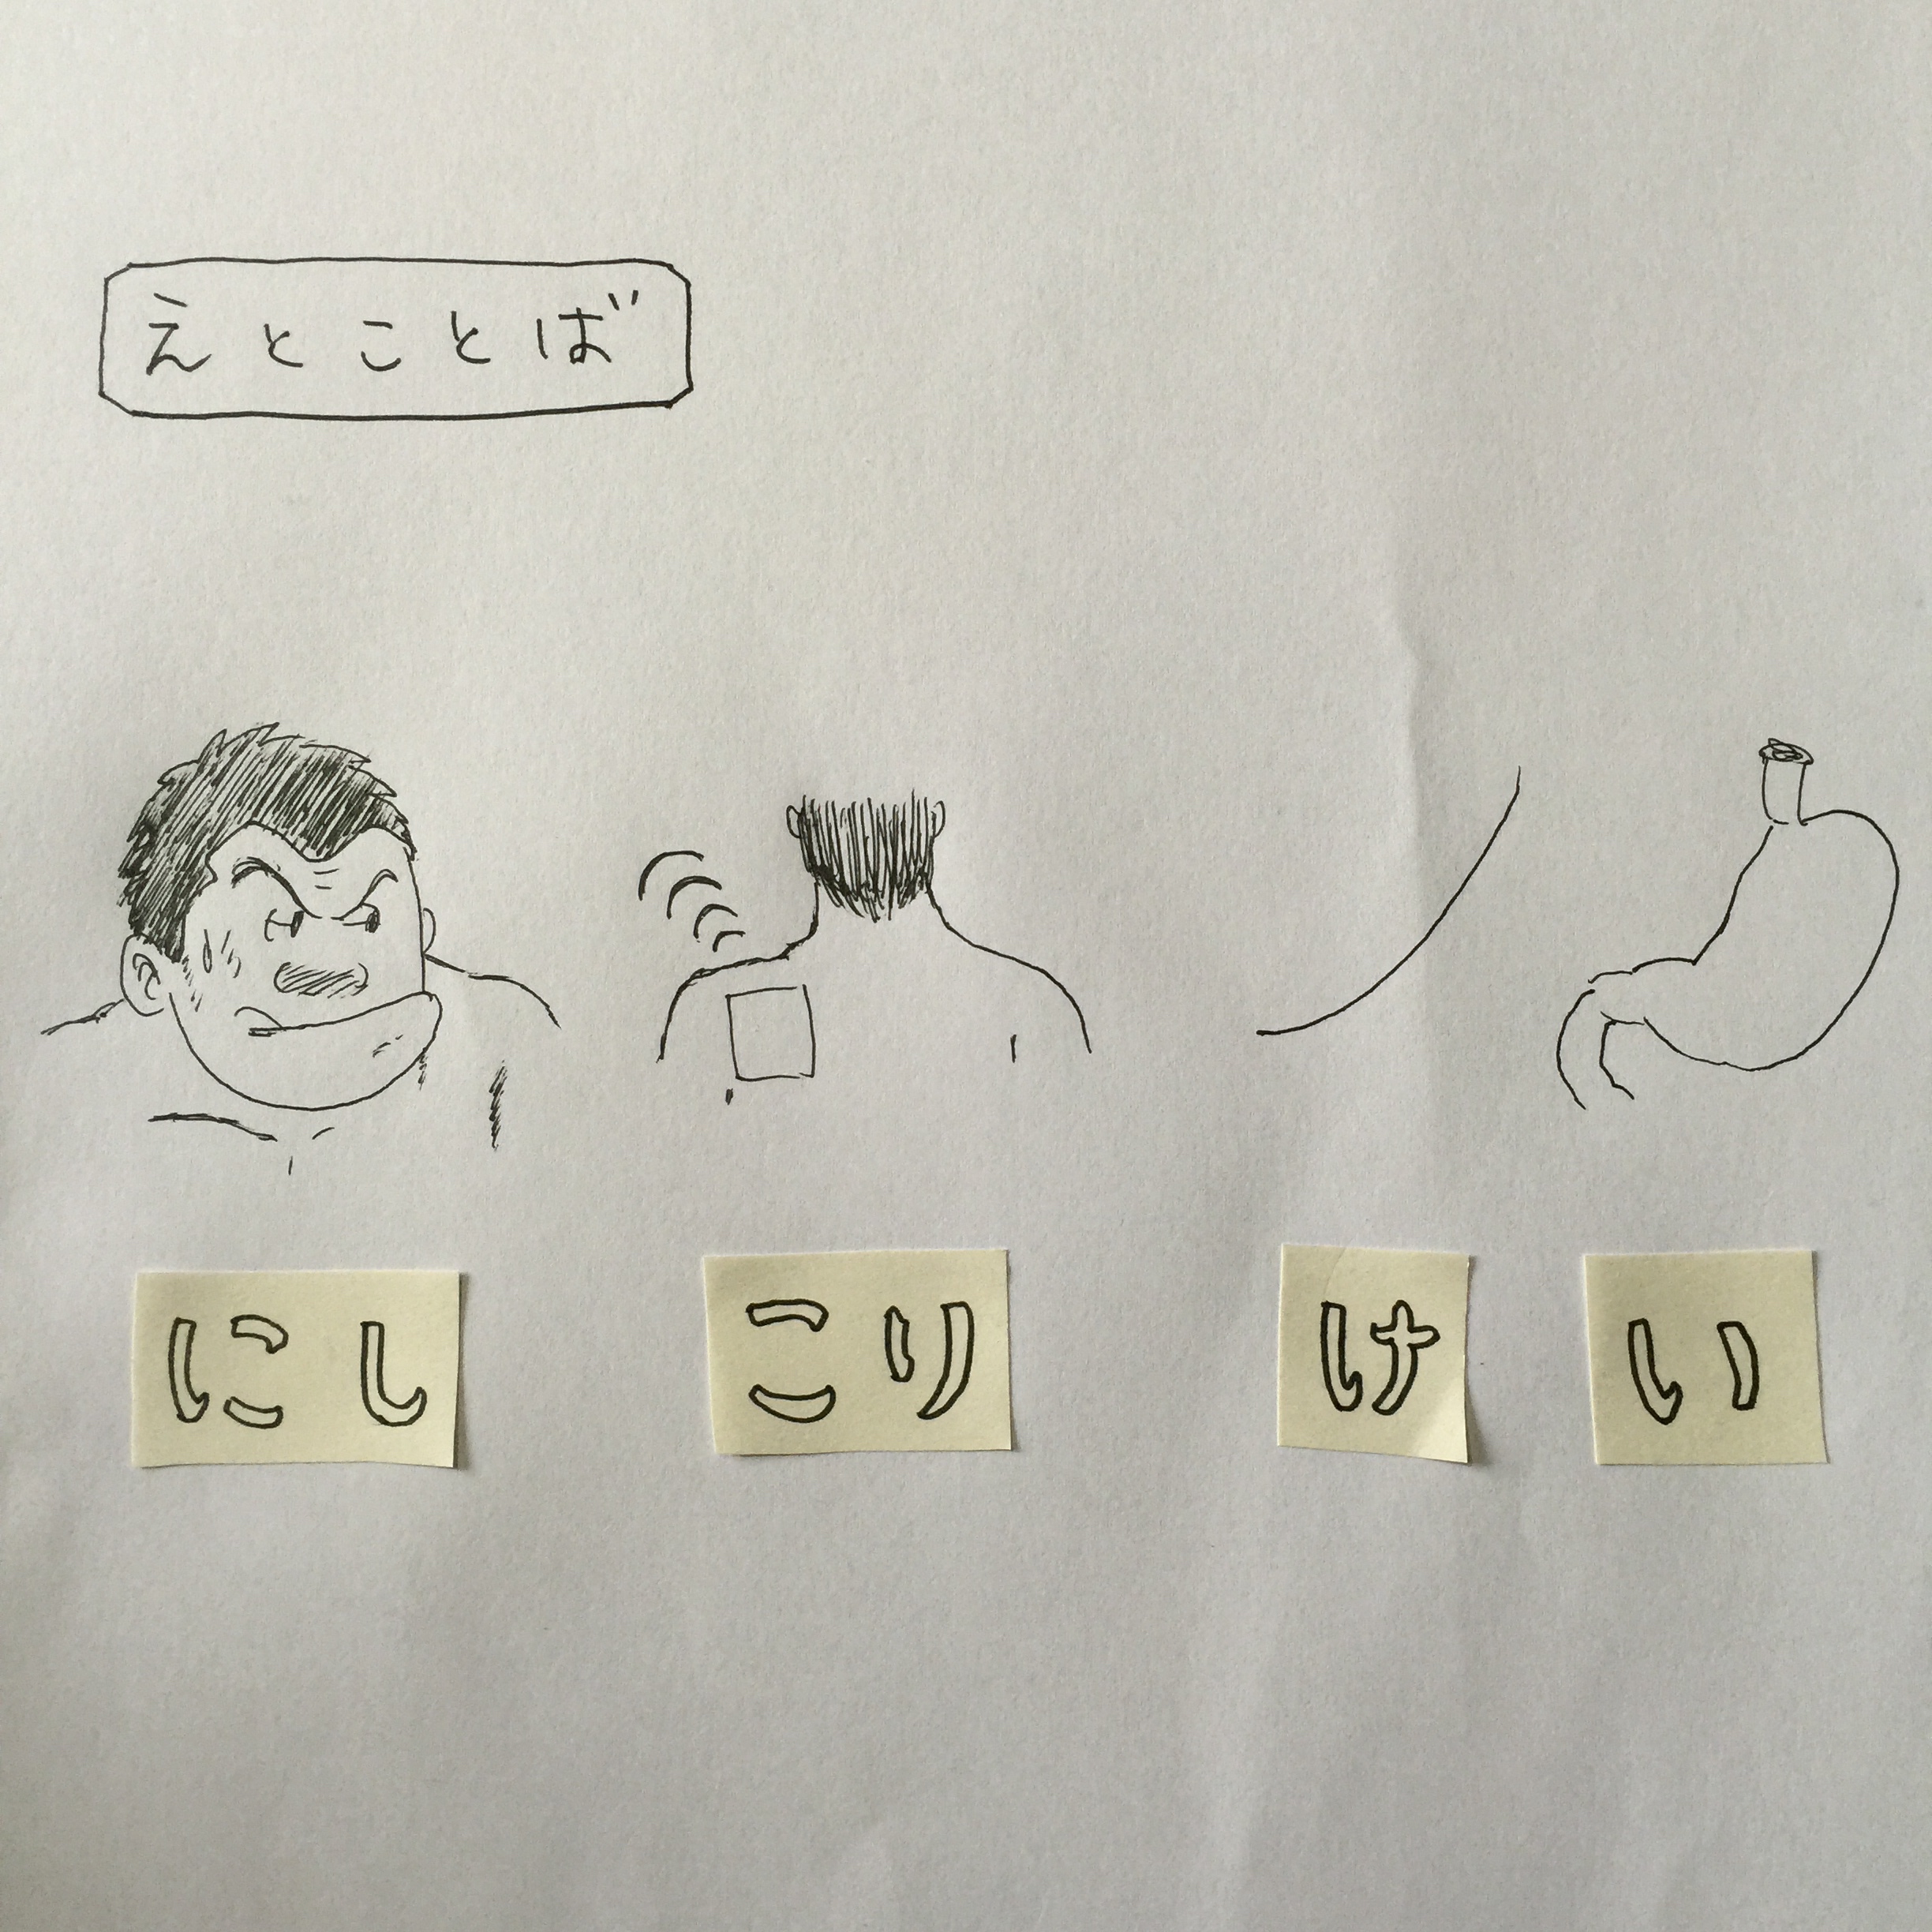 えとことば
にし こり け い